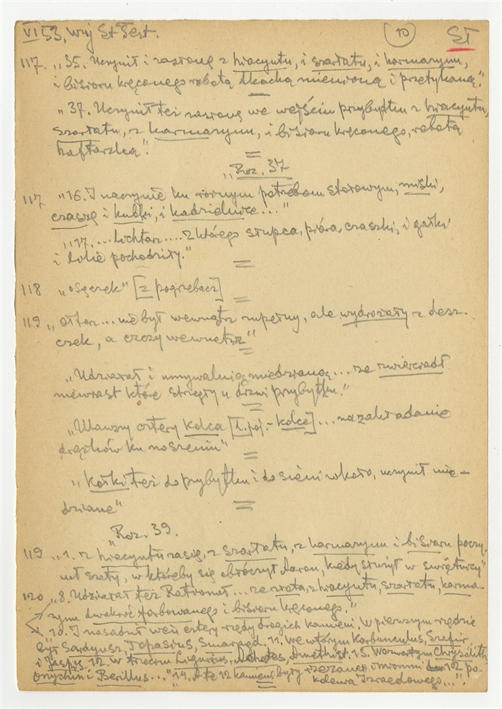 VI 53, wyj. St. Test. 10 SŁ
117. „35. Uczynił i zasłonę z hiacyntu, i szarłatu, i karmazynu,
i bisioru kręconego robotą tkacką mienioną i przetykaną."
„37. Uczynił też zasłonę we wejściu przybytku z hiacyntu,
szarłatu, z karmazynu, i bisioru kręconego, robotą
haftarską."
„Roz. 37
117 „16. I naczynie ku różnym potrzebom stołowym, miski,
czasze i kubki, i kadzielnice..."
„17.... lichtarz.... z którego słupca, pióra, czaszki, i gałki
i lilie pochodziły."
118 „osęczek" [= pogrzebacz]
119 „ołtarz... nie był wewnątrz zupełny, ale wydrożały z desz-
czek, a czczy wewnątrz"
„Udziałał i umywalnię miedzianą... ze zwierciadł
niewiast które strzegły u drzwi przybytku."
„Ulawszy cztery kolca [l. poj. - kolce]... na zakładanie
drążków ku noszeniu"
„Kołki też do przybytku i do sieni wkoło, uczynił mie-
dziane"
„Roz. 39.
119 „1. z hiacyntu zasię, z szarłatu, z karmazynu i bisioru poczy-
nił szaty, w któreby się obłóczył Aaron, kiedy służył w świętnicy"
120 „8. Udziałał też Racyonał... ze złota, z hiacyntu, szarłatu, karma-
zynu dwakroć farbowanego i bisioru kręconego."
„10. I nasadził weń cztery rzędy drogich kamieni, w pierwszym rzędzie
był Sardyusz, Topazius, Smaragd. 11. we wtórym Karbunculus, Szafir,
i Jaspis. 12. w trzecim Liguriusz, Achates, Amethist. 13. W czwartym Chryzolith,
Onychin i Beryllus..." „14. A te 12 kamieni były rzezane imionmi 12 po-
kolenia Izraelowego..."